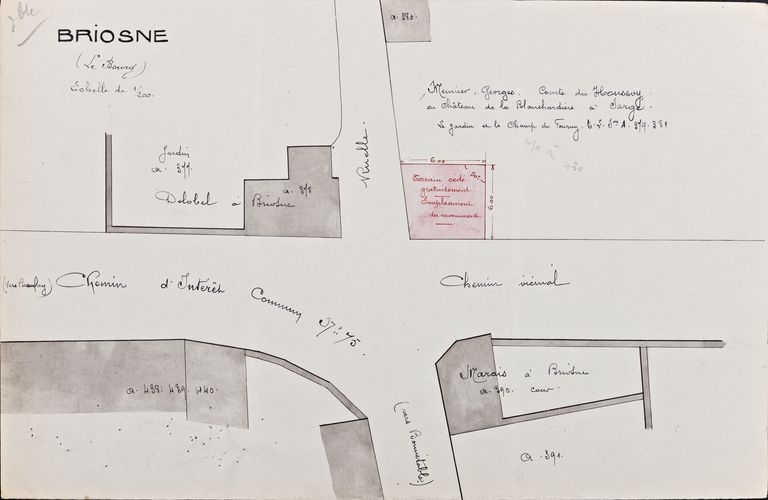 BRIOSNE
(Le Bourg)
Echelle de 1/200.
a. 380.
Meunier, Georges. Comte du Houssoy.
au Château de la Blanchardière à Sargé.
Le Jardin et le Champ du Fourny, C. S. Son A. 379. 381
Ruelle
Jardin
a. 377.
a. 378
Delobel à Briosne
6.00
90°
Terrain cédé
gratuitement
Emplacement
du monument
6.00
Chemin d'Intérêt Commun No 75.
Chemin vicinal
a. 438. 439. 440.
Marais à Briosne
a. 390 cour
(vers Bonnétable)
a. 391.